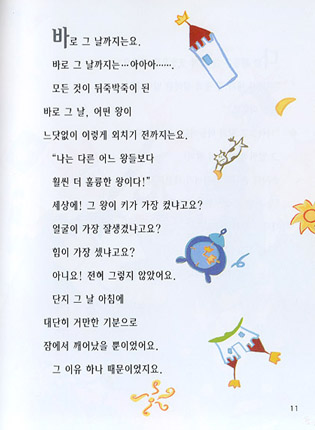 바로 그 날까지는요.
바로 그 날까지는…아아아…….
모든 것이 뒤죽박죽이 된
바로 그 날, 어떤 왕이
느닷없이 이렇게 외치기 전까지는요.
“나는 다른 어느 왕들보다
훨씬 더 훌륭한 왕이다!”
세상에! 그 왕이 키가 가장 컸냐고요?
얼굴이 가장 잘생겼냐고요?
힘이 가장 셌냐고요?
아니요! 전혀 그렇지 않았어요.
단지 그 날 아침에
대단히 거만한 기분으로
잠에서 깨어났을 뿐이었어요.
그 이유 하나 때문이었지요.
11